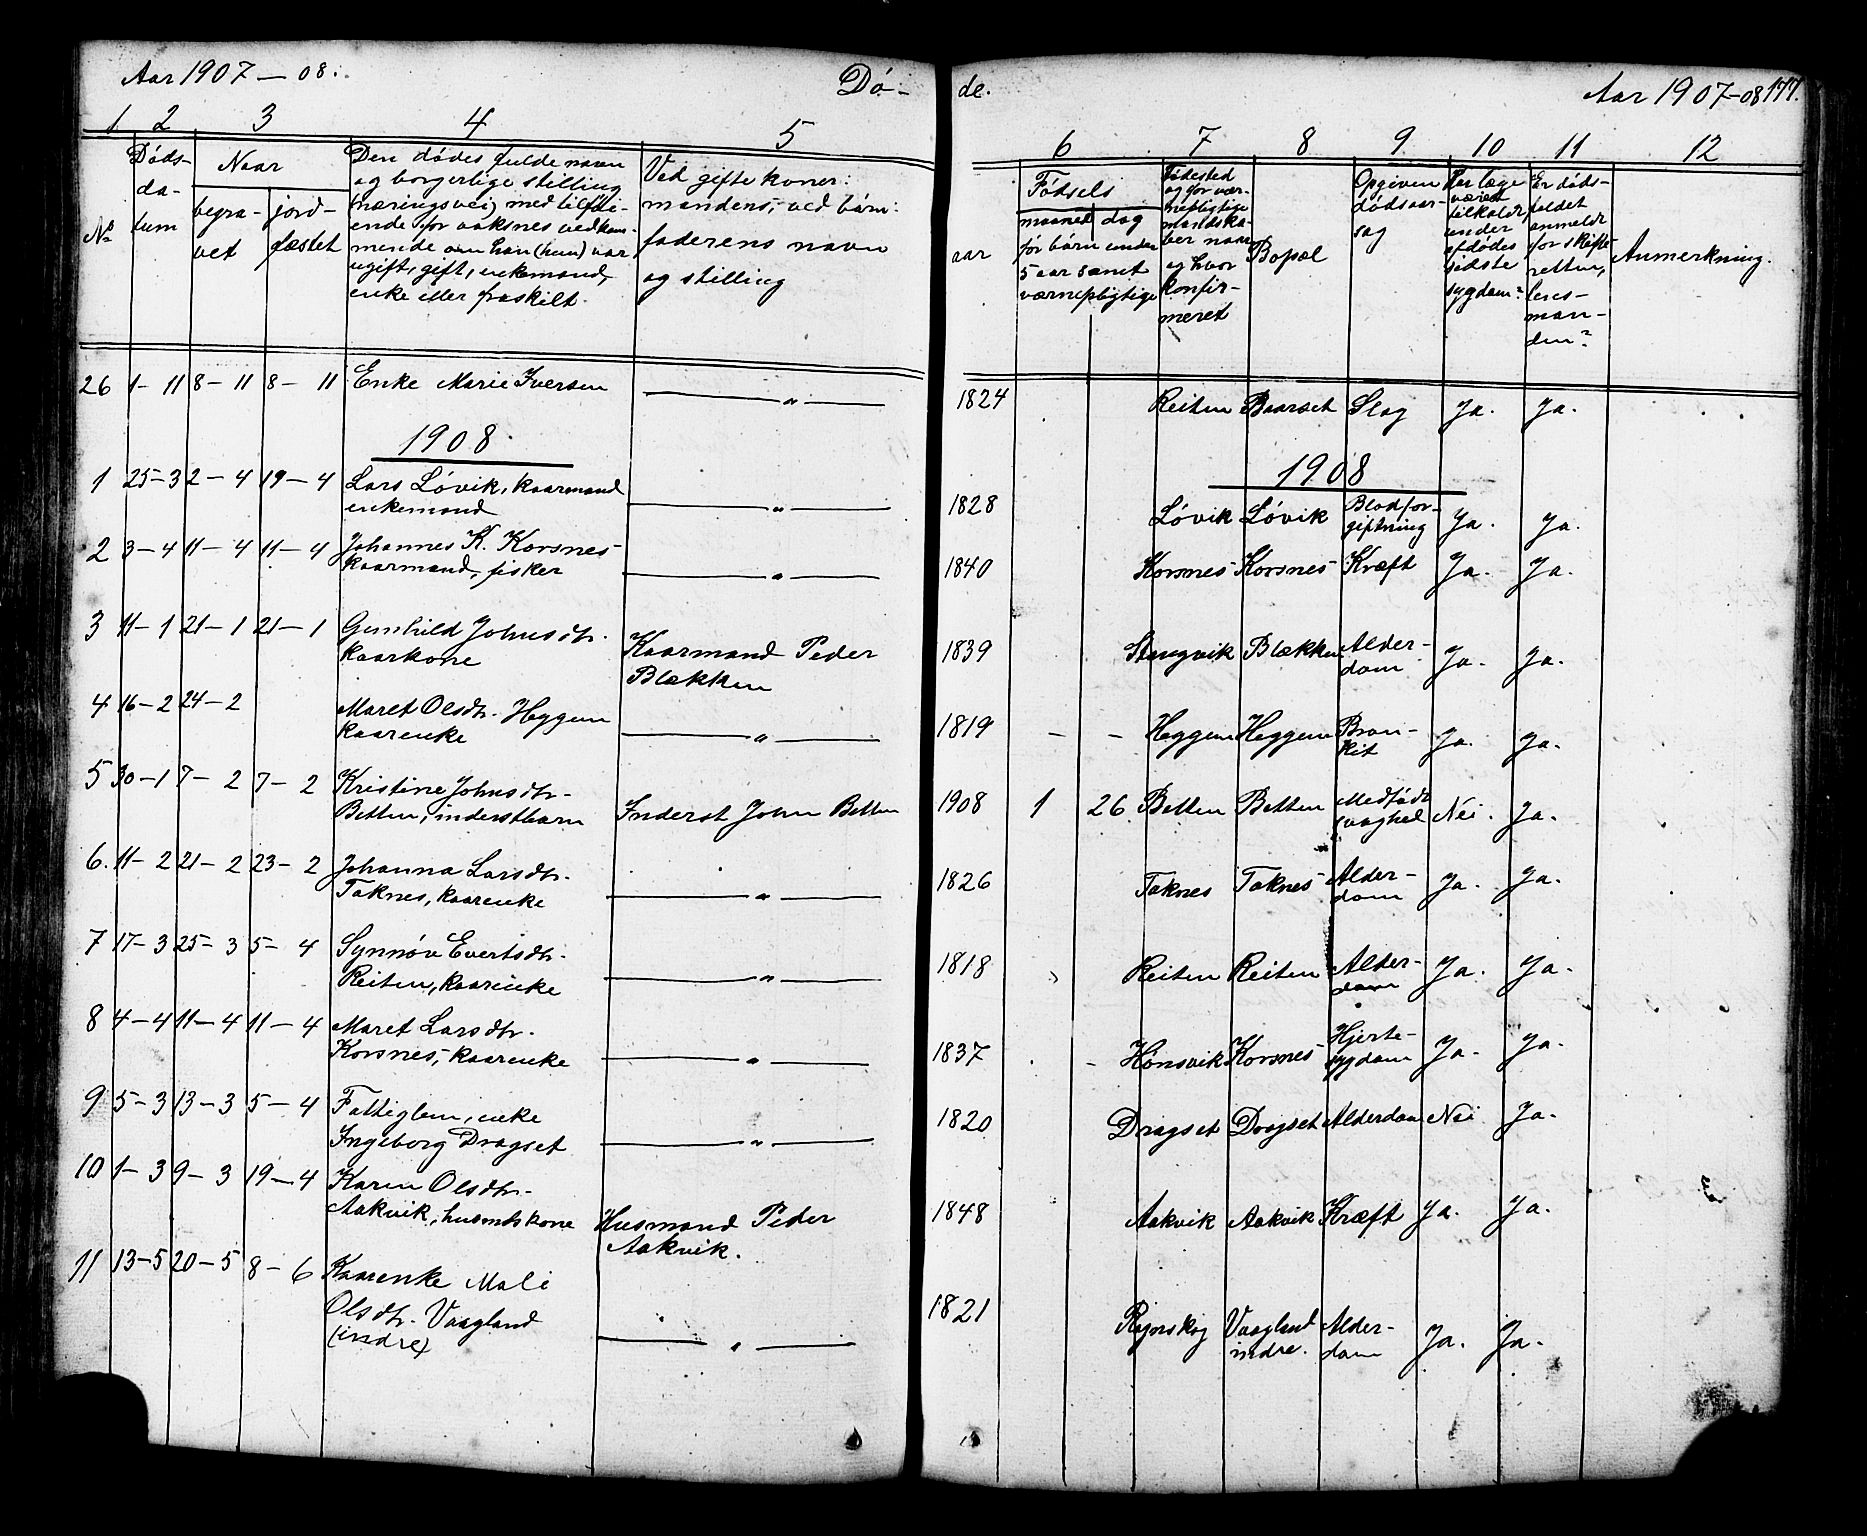 Aar 1907 — 08.
Dø-
de.
Aar 1907-08 177.
1 2 3 4 5
6 7 8 9. 10 11 12
No
Døds-
da-
tum
Naar
begra-
vet
jord-
fæstet
Den dødes fulde navn
og borgerlige stilling
(næringsvei) med tilføi-
ende for voksnes vedkom-
mende om han (hun) var
ugift, gift, enkemand,
enke eller fraskilt.
Ved gifte koner:
mandens, ved børn:
faderens navn
og stilling
Fødsels
aar
maaned dag
for børn under
5 aar samt
værnepligtige
Fødested
og for vær-
nepligtige
mandska-
ber naar
og hvor
konfir-
meret
Bopæl
Opgiven
dødsaar-
sag
Har læge
været
tilkaldt
under
afdødes
sidste
sygdom?
Er døds-
faldet
anmeldt
for skifte-
retten,
lens-
man-
den?
Anmerkning.
26 1- 11 8- 11 8- 11 Enke Marie Iversen — „ — 1824 Reiten Baarset Slag Ja. Ja.
1908.
1908
1 25-3 2-4 19-4 Lars Løvik, kaarmand
enkemand — „ — 1828 Løvik Løvik Blodfor-
giftning Ja. Ja.
2 3-4 11-4 11-4 Johannes K. Korsnes
kaarmand, fisker — „ — 1840 Korsnes Korsnes Kræft Ja. Ja.
3 11-1 21-1 21-1 Gunhild Johnsdtr.
kaarkone Kaarmand Peder
Blækken 1839 Stangvik Blækken Alder-
dom Ja. Ja.
4 16-2 24-2 Maret Olsdtr. Heggem
kaarenke — „ — 1819 — — Heggem Heggem Bron-
kit Ja. Ja.
5 30-1 7-2 7-2 Kristine Johnsdtr.
Betten, inderstbarn Inderst John Betten 1908 1 26 Betten Betten Medfødt
svaghed Nei. Ja.
6. 11-2 21-2 23-2 Johanna Larsdtr.
Taknes, kaarenke — „ — 1826 Taknes Taknes Alder-
dom Ja. Ja.
7 17-3 25-3 5-4 Synnøv Evertsdtr.
Reiten, kaarenke — „ — 1818 Reiten Reiten Alder-
dom Ja. Ja.
8 4-4 11-4 11-4 Maret Larsdtr.
Korsnes, kaarenke — „ — 1837 - Hønsvik Korsnes Hjerte-
sygdom Ja. Ja.
9 5-3 13-3 5-4 Fattiglem, enke
Ingeborg Dragset — „ — 1820 Dragset Dragset Alderdom Nei Ja.
10 1-3 9-3 19-4 Karen Olsdtr.
Aakvik, husmdskone Husmand Peder
Aakvik. 1848 Aakvik Aakvik Kræft Ja. Ja.
11 13-5 20-5 8-6 Kaarenke Mali
Olsdtr. Vaagland
(indre) — „ — 1821 Vaagland
indre. Alder-
dom Ja. Ja.